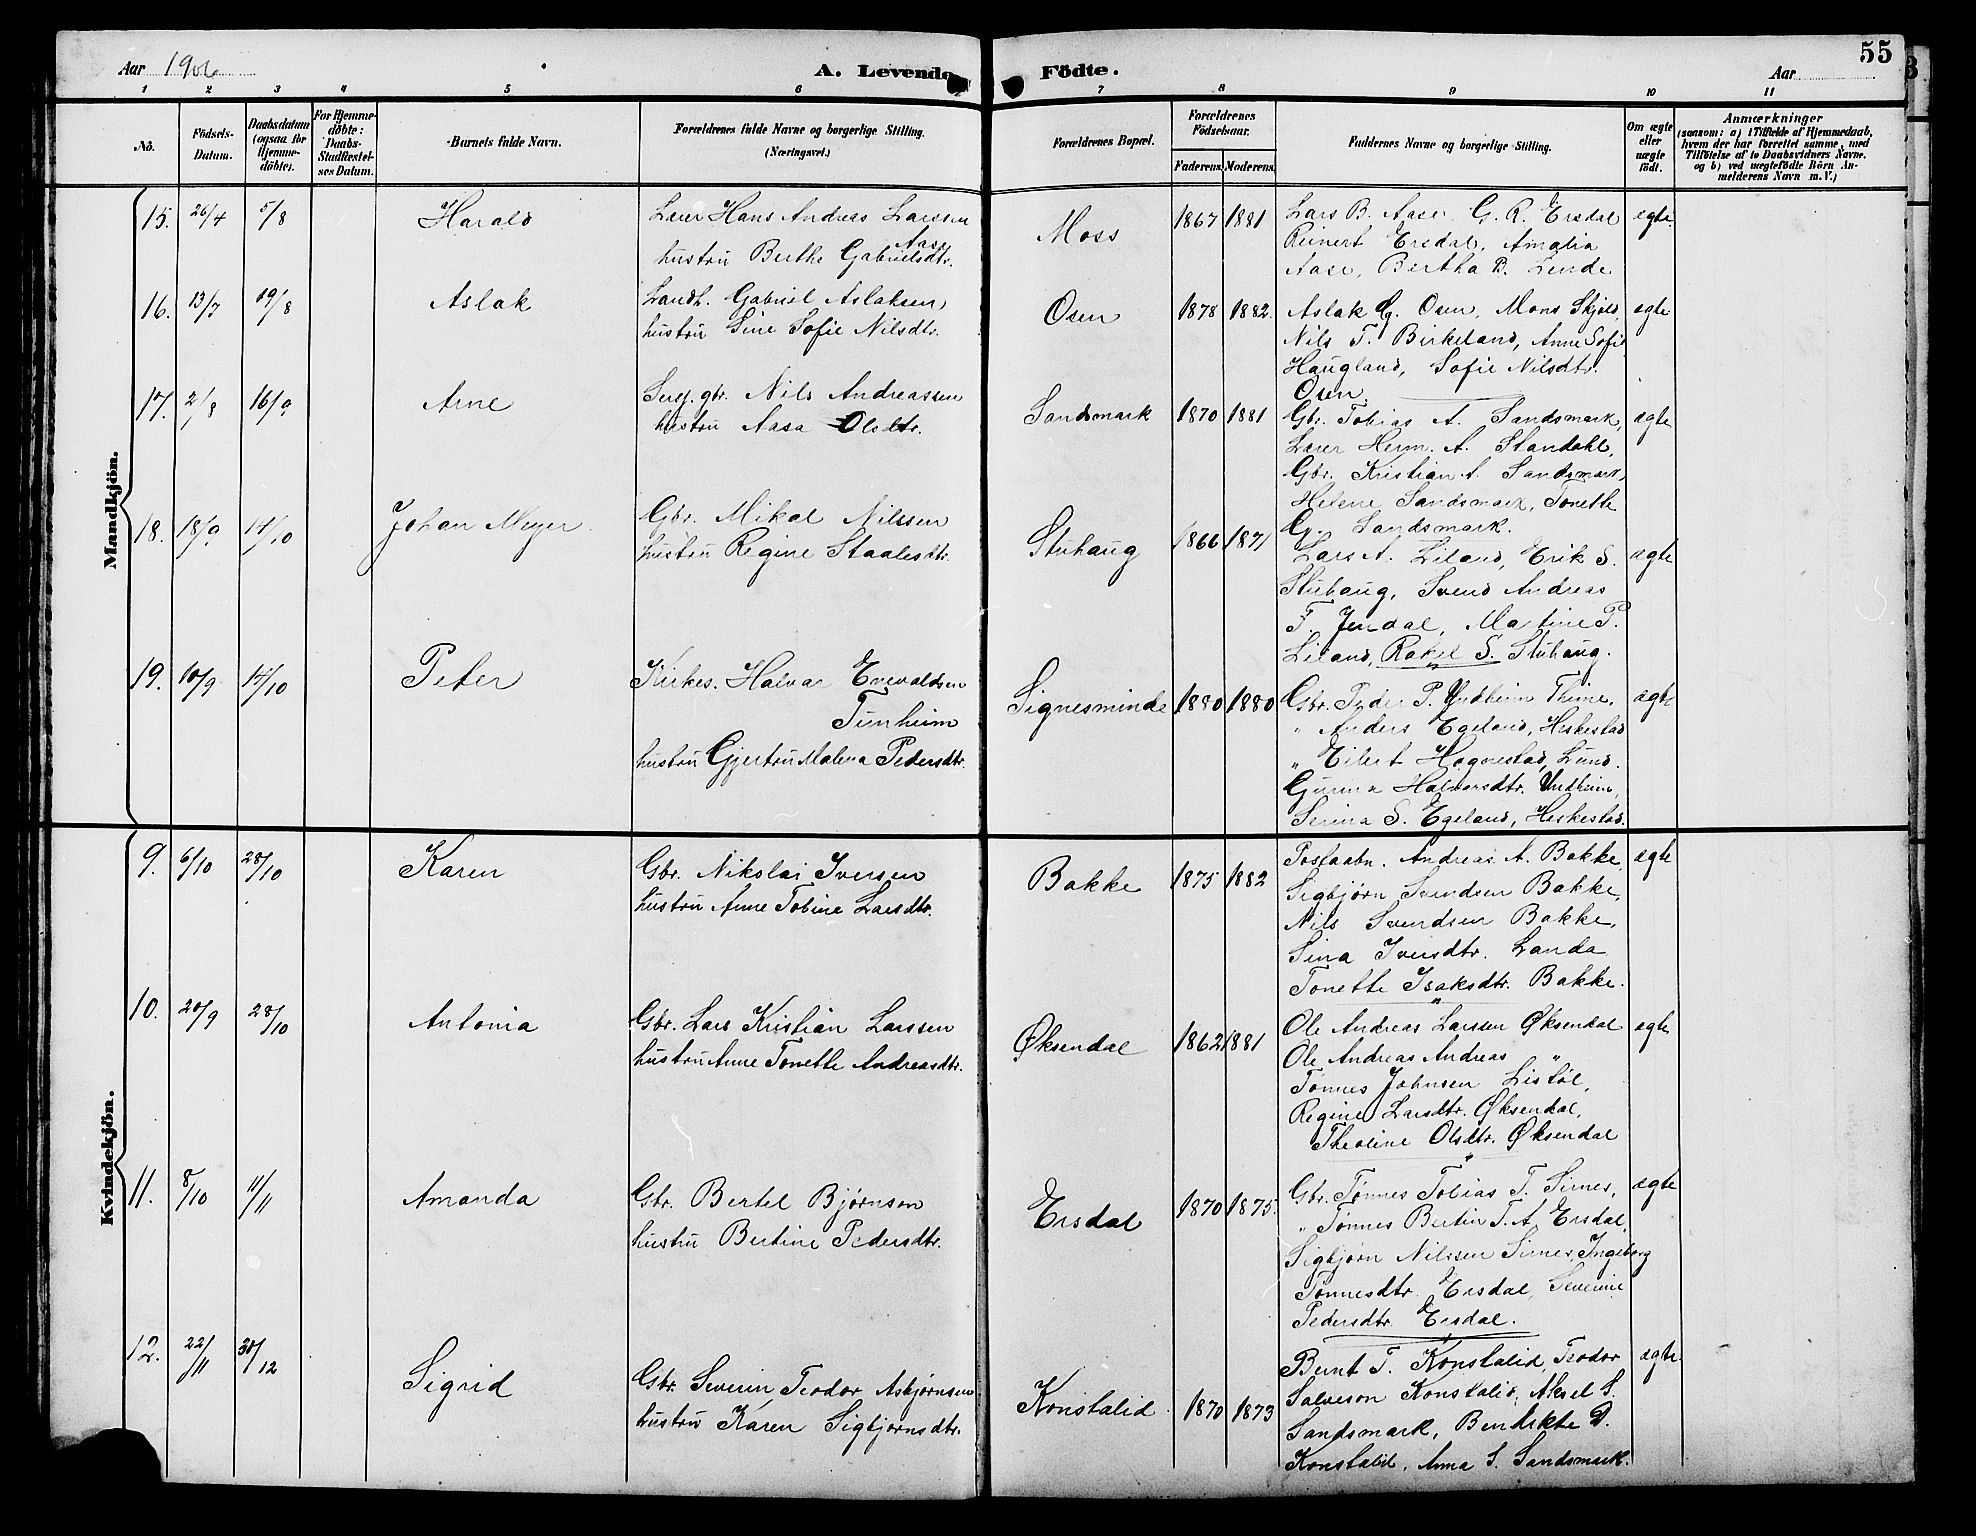 55
Aar 1906
A. Levende Födte.
Aar
1 2 3 4 5 6 7 8 9 10 11
No.
Födsels-
Datum.
Daabsdatum
(ogsaa for
Hjemme-
döbte).
For Hjemme-
döbte:
Daabs-
Stadfæstel-
ses Datum.
Barnets fulde Navn.
Forældrenes fulde Navne og borgerlige Stilling.
(Næringsvei.)
Forældrenes Bopæl.
Forældrenes
Födselsaar.
Faderens. Moderens.
Faddernes Navne og borgerlige Stilling.
Om ægte
eller
uægte
født.
Anmærkninger
(saasom: a) i Tilfælde af Hjemmedaab,
hvem der har forrettet samme, med
Tilföielse af to Daabsvidners Navne,
og b) ved uægtefödte Börn An-
melderens Navn m. V.)
Mandkjön.
15. 26/4 5/8 Harald
Lærer Hans Andreas Larssen
Aase
hustru Berthe Gabrielsdtr.
Moss 1867 1881
Lars B. Aase, G. R. Ersdal
Reinert Ersdal, Amalia
Aase, Bertha B. Lende
ægte.
16. 13/7 19/8 Aslak
Landh. Gabriel Aslaksen,
hustru Sine Sofie Nilsdtr.
Osen 1878 1882.
Aslak G. Osen, Mons Skjold,
Nils T. Birkeland, Anne Sofie
Haugland, Sofie Nilsdtr.
Osen.
ægte
17. 2/8 16/9 Arne
Serg. gbr. Nils Andreassen
hustru Aasa Olsdtr.
Sandsmark 1870 1881
Gbr. Tobias A. Sandsmark,
Lærer Herm. A. Standahl,
Gbr. Kristian A. Sandsmark,
Helene Sandsmark, Tonette
G. Sandsmark.
ægte
18. 18/9 14/10 Johan Meyer.
Gbr. Mikal Nilssen
hustru Regine Staalesdtr.
Stuhaug 1866 1871
Lars A. Liland, Erik S.
Stuhaug, Svend Andreas
F. Jerdal, Martine P.
Liland, Rakel S. Stuhaug.
ægte
19. 10/9 14/10 Peter
Kirkes. Halvar Enevaldsen
Tunheim
hustru Gjertru Malena Pedersdtr.
Signesminde 1880 1880
Gbr. Peder P. Undheim Thime,
" Anders Egeland, Heskestad
" Eilert Hagnestad, Lund.
Gurina Halvorsdtr. Undheim,
Serina S. Egeland, Heskestad.
ægte
Kvindekjön.
9. 6/10 28/10 Karen
Gbr. Nikolai Iversen
hustru Anne Tobine Larsdtr.
Bakke 1875 1882
Postaabn. Andreas A. Bakke,
Sigbjørn Svendsen Bakke,
Nils Svendsen Bakke,
Sina Iversdtr. Landa
Tonette Isaksdtr. Bakke.
ægte
10. 20/9 28/10 Antonia
Gbr. Lars Kristian Larssen
hustru Anne Tonette Andreasdtr.
Øksendal 1862 1881
Ole Andreas Larssen Øksendal
Ole Andreas Andreas "
Tønnes Johnsen Listøl,
Regine Larsdtr. Øksendal,
Theoline Olsdtr. Øksendal
ægte
11. 8/10 11/11 Amanda
Gbr. Bertel Bjørnson
hustru Bertine Pedersdtr.
Ersdal 1870 1875.
Gbr. Tønnes Tobias T. Sirnes,
" Tønnes Bertin T. A. Ersdal,
Sigbjørn Nilssen Sirnes, Ingeborg
Tønnesdtr. Ersdal, Severine
Pedersdtr. Ersdal.
ægte
12. 22/11 30/12 Sigrid
Gbr. Severin Teodor Asbjørnsen
hustru Karen Sigbjørnsdtr.
Konstalid 1870 1873
Bernt T. Konstalid, Teodor
Salveson Konstalid, Aksel S.
Sandsmark, Bendikte D.
Konstalid, Anna S. Sandsmark.
ægte.